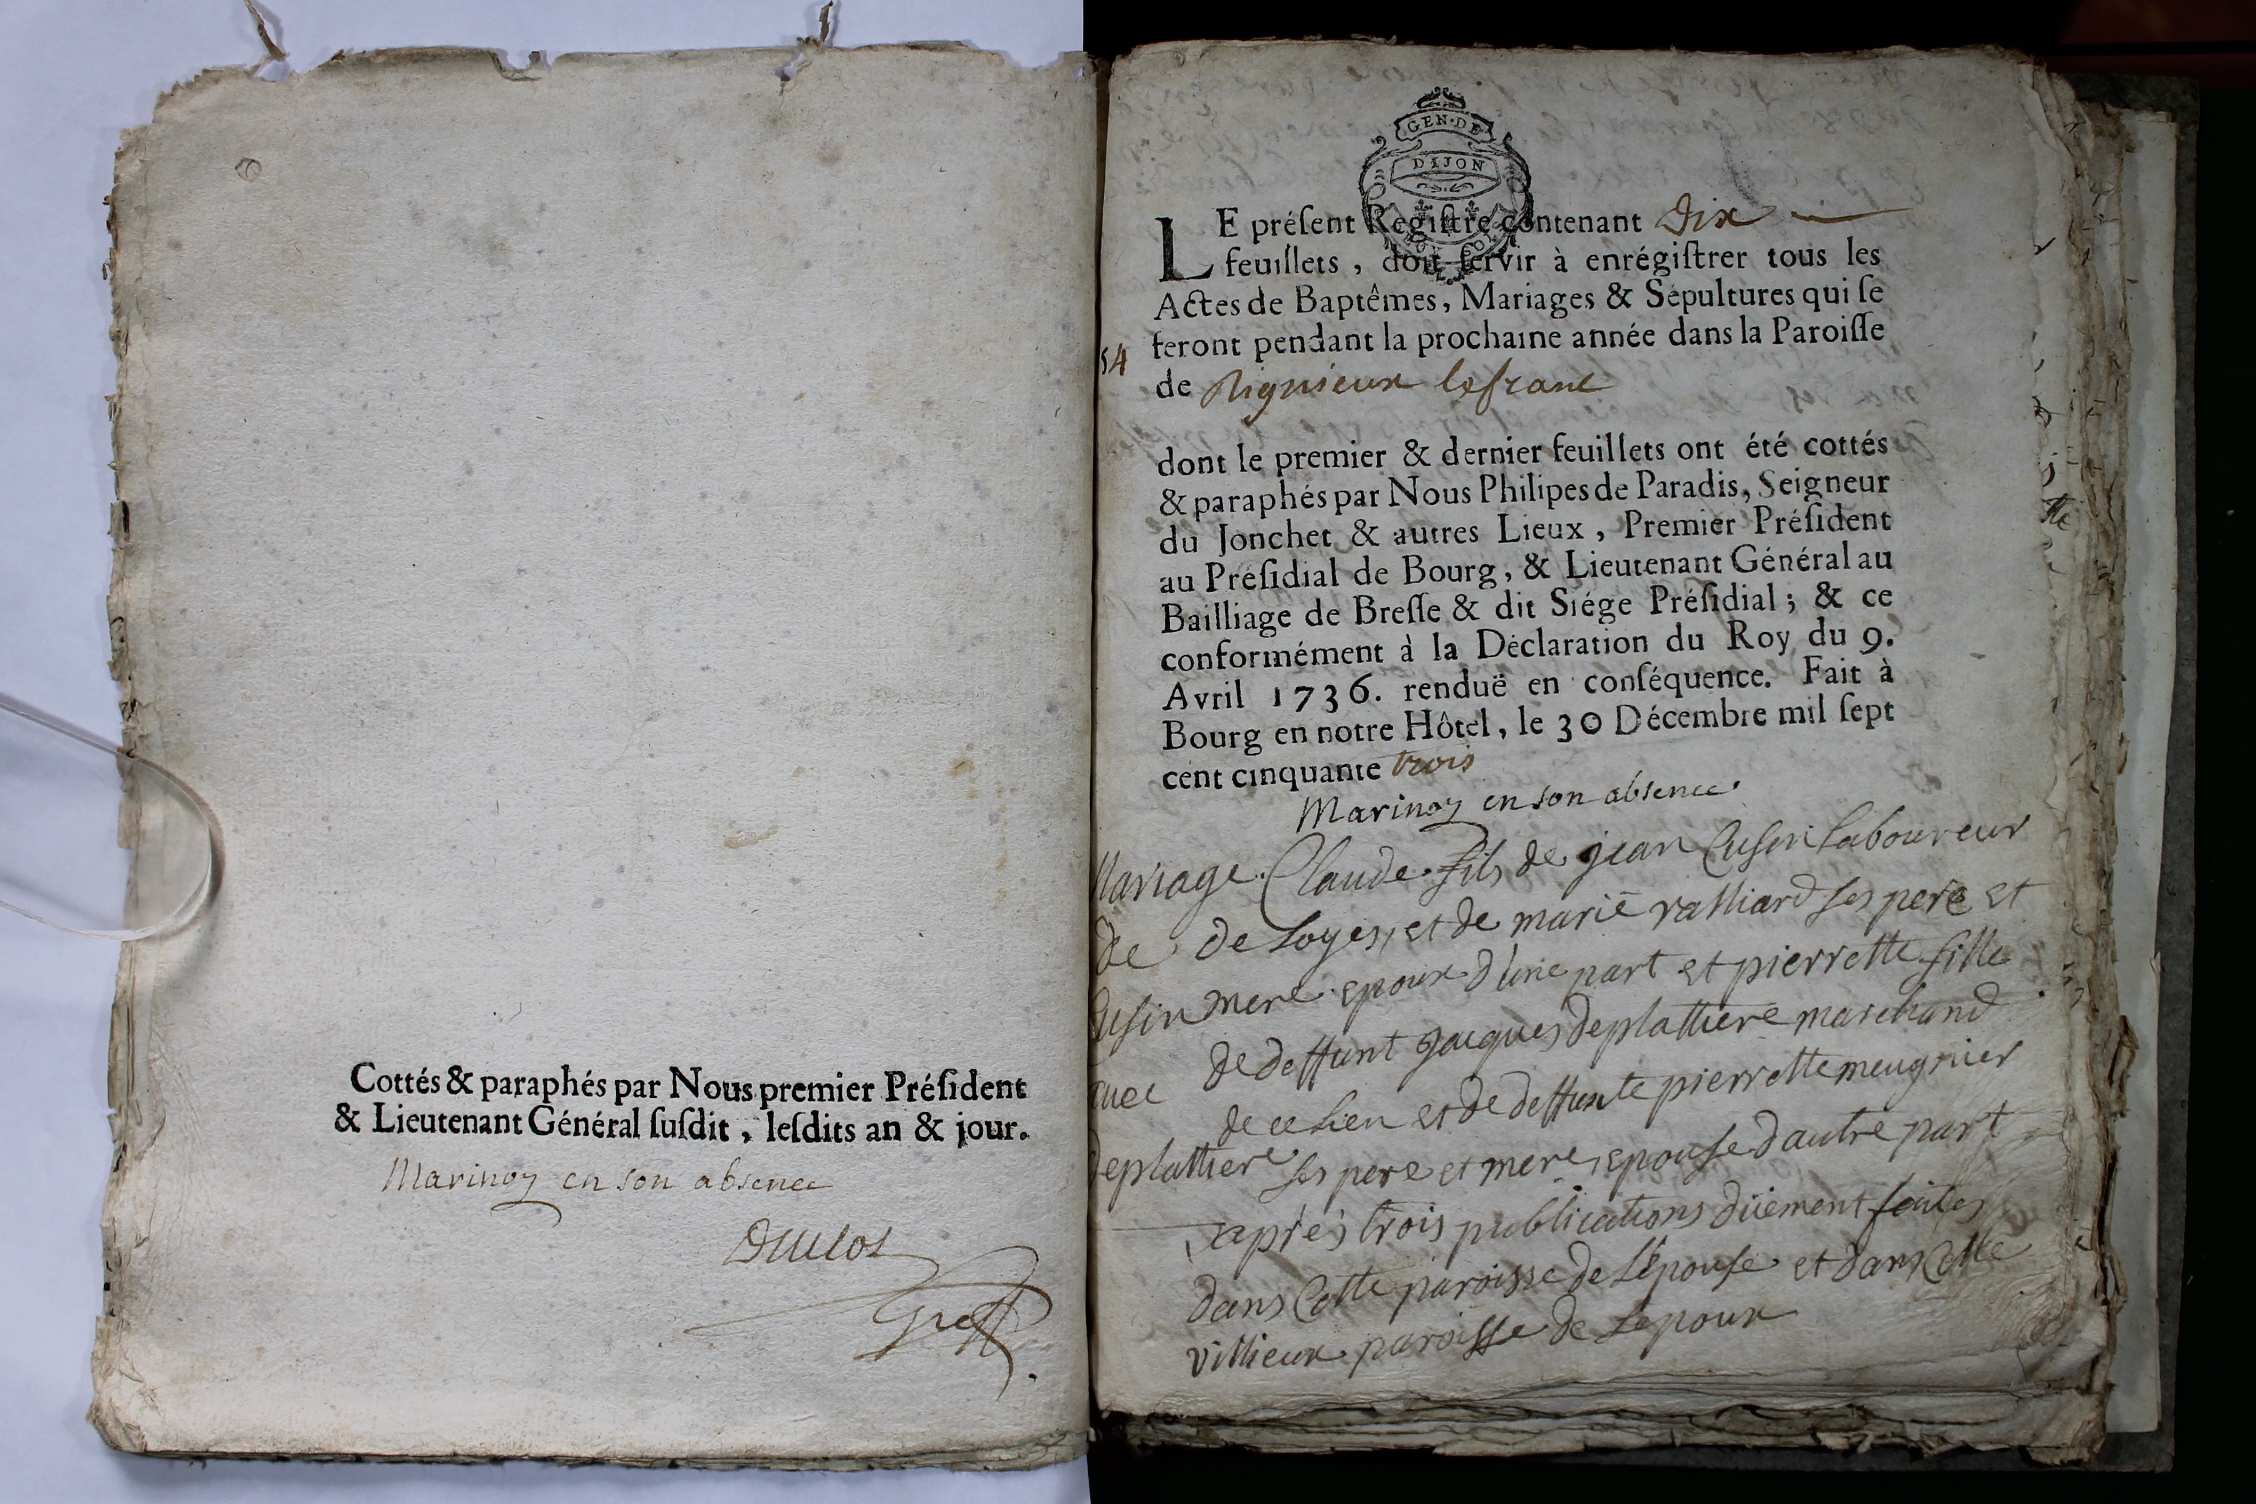 Cottés & paraphés par Nous premier Préſident
& Lieutenant Général ſuſdit, leſdits an & jour.
Marinoy en son absence
Duclos
Greff
GEN·DE
DIJON
LE préſent Regiſtre contenant Dix
feuillets, doit ſervir à enrégiſtrer tous les
Actes de Baptêmes, Mariages & Sépultures qui ſe
feront pendant la prochaine année dans la Paroiſſe
54
de Rignieux lefranc
dont le premier & dernier feuillets ont été cottés
& paraphés par Nous Philipes de Paradis, Seigneur
du Jonchet & autres Lieux, Premier Préſident
au Préſidial de Bourg, & Lieutenant Général au
Bailliage de Breſſe & dit Siége Préſidial; & ce
conformément à la Déclaration du Roy du 9.
Avril 1736. renduë en conſéquence. Fait à
Bourg en notre Hôtel, le 30 Décembre mil ſept
cent cinquante trois
Marinoy en son absence.
Mariage Claude fils de jean Cusin laboureur
de de Loyes, et de marie ralliard ses pere et
Cusin mere epoux d'une part et pierrette fille
de deffunt Jacques deplattiere marchand
avec de ce Lieu et de deffunte pierrette meugnier
deplattiere ses pere et mere, epouse d'autre part
après trois publications düement faites
dans Cette paroisse de L'épouse et dans Celle
villieux paroisse de Lepoux